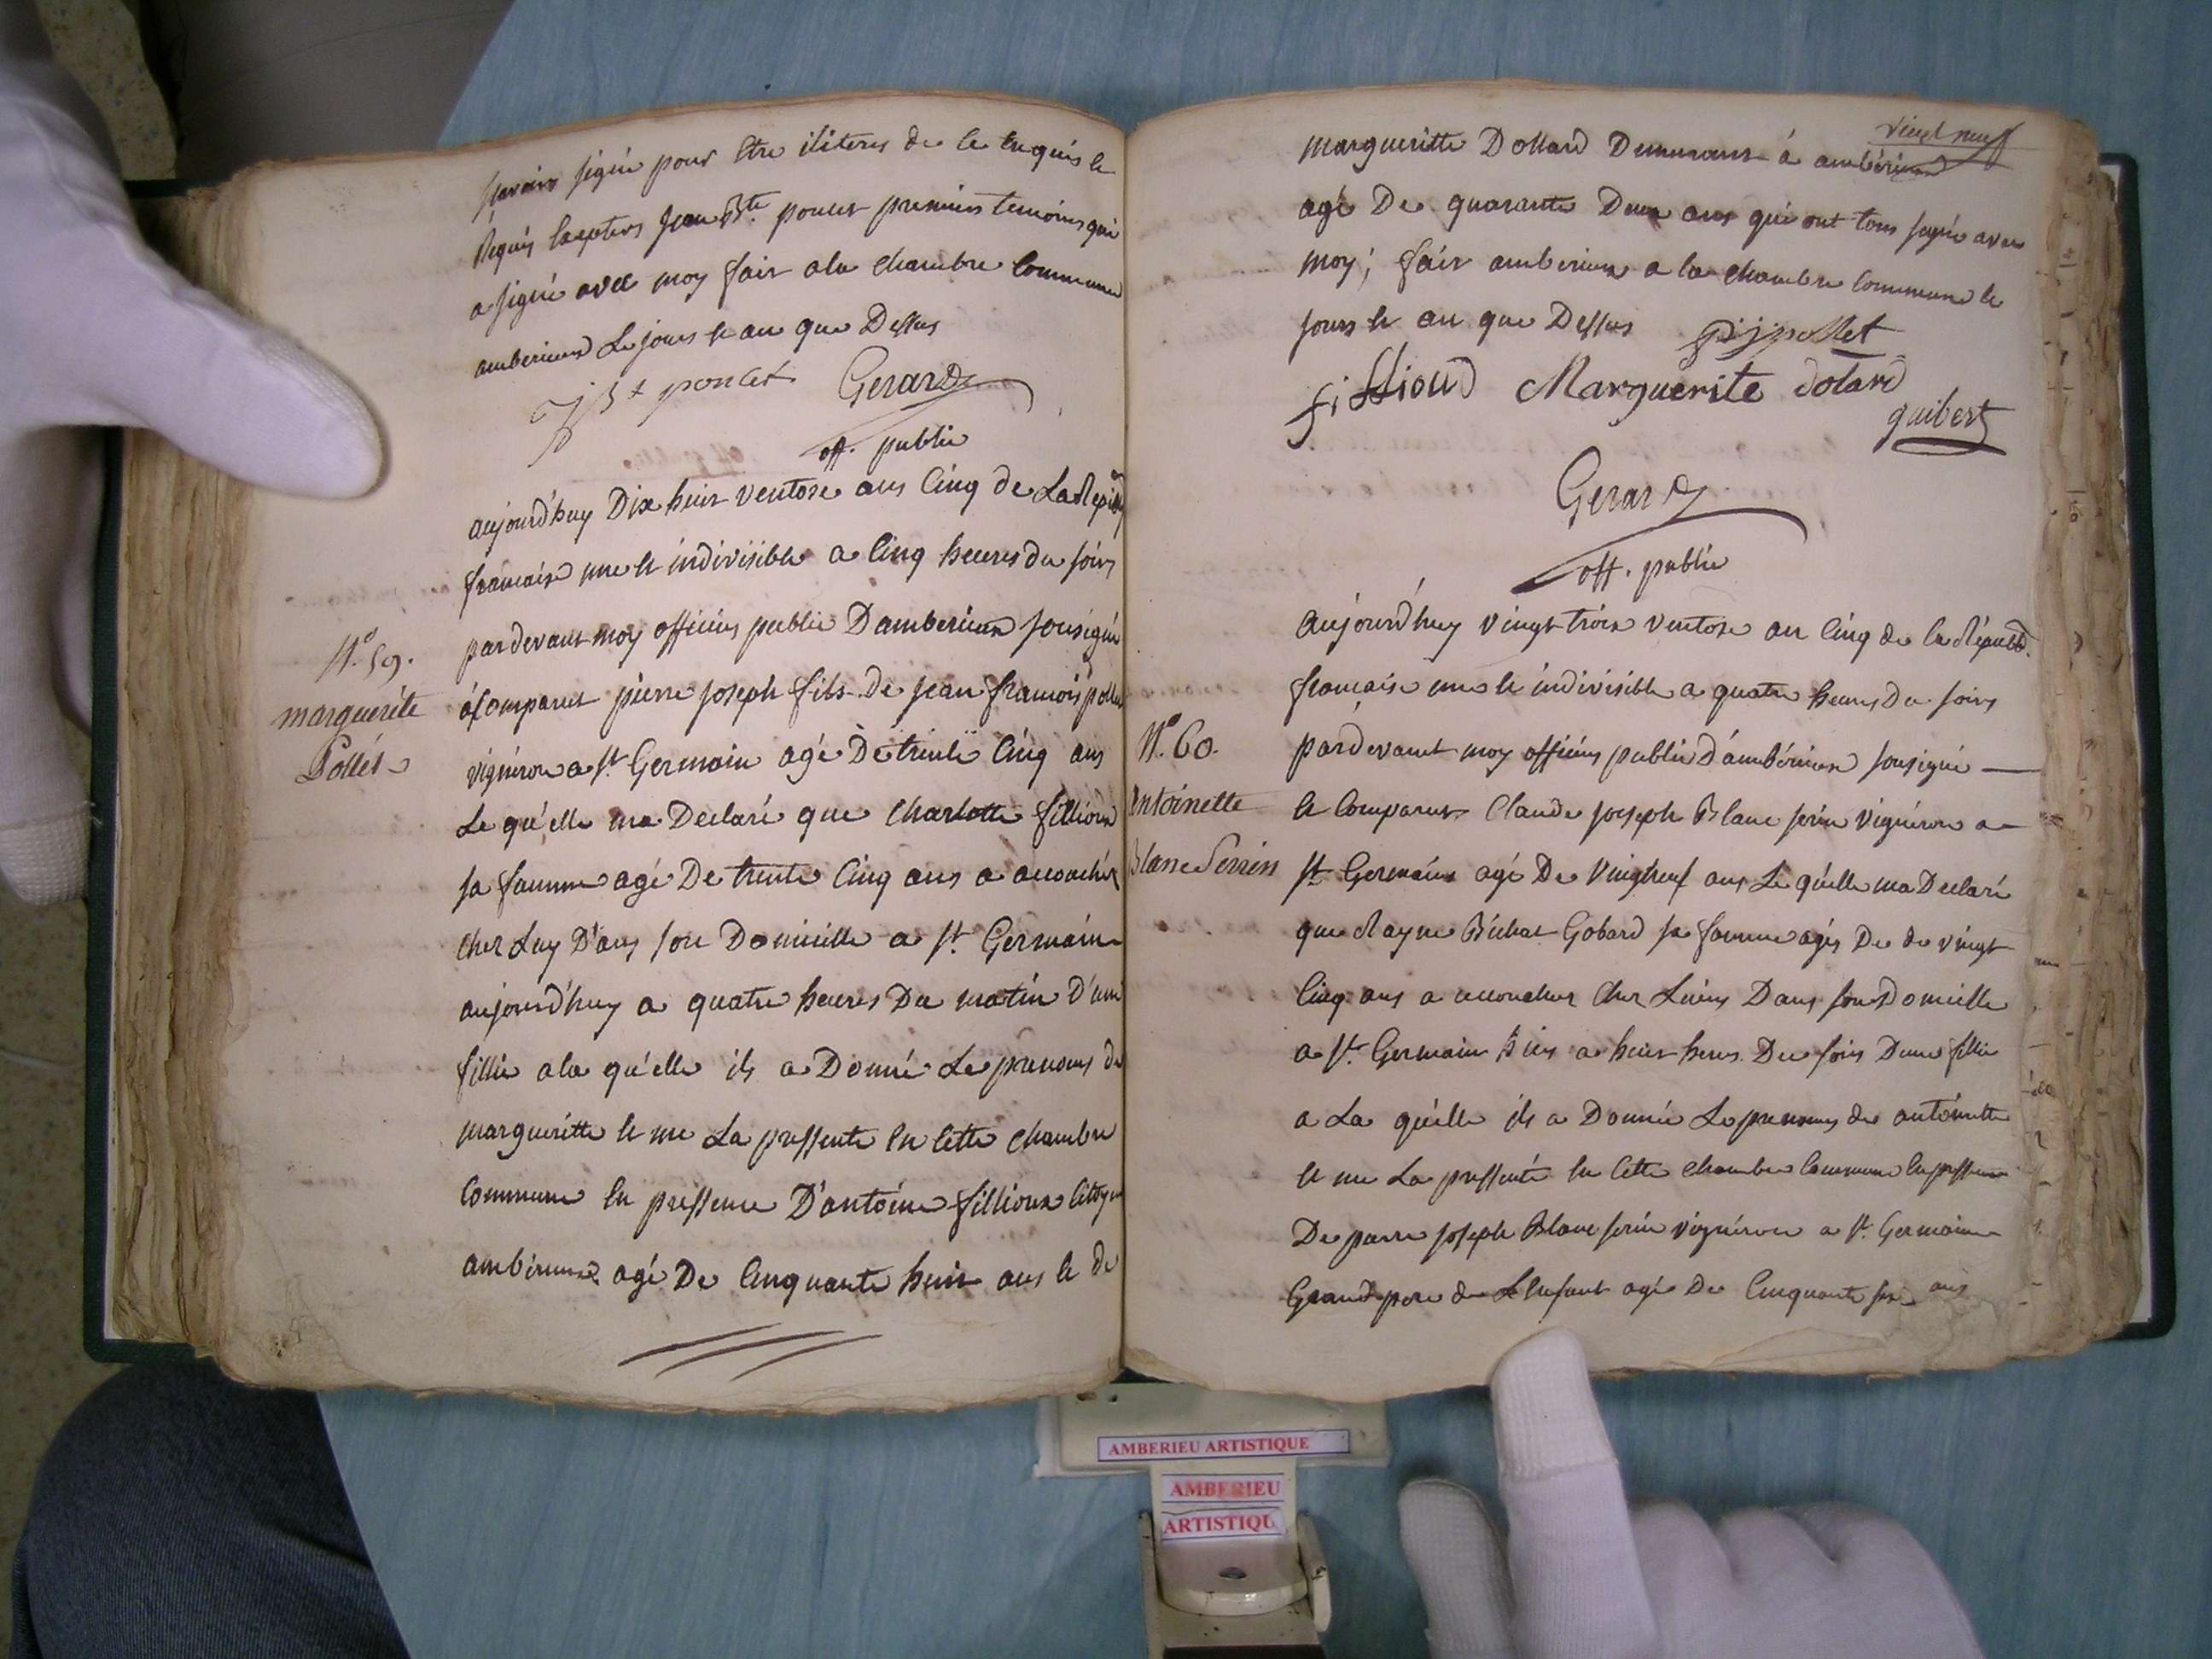 scavoir signé pour être iliteres de ce enquis le
Requis Excepters jean Bte. poncet premiers temoins qui
a signé avec moy fair a la chambre Commune
amberieux Le jours et an que Dessus
JBt poncet Gerard
off. public
aujourd'huy Dix huit ventose ans Cinq de La Repub
francaise une et indivisible a Cinq heures du soirs
pardevant moy officiers public D'amberieux sousigné
a Comparut pierre joseph fils de jean francois pollet
vigneron a St Germain agé De trente Cinq ans
Le qu'elle ma Declaré que Charlotte fillioux
sa famme agé De trente Cinq ans a accouchér
cher Luy D'ans son Domicille a St. Germain
aujourd'huy a quatre heures Du matin D'une
fillie a la qu'elle ils a Donné Le prenoms de
margueritte et me La pressenté En Cette chambre
Commune En pressence D'antoine fillioux Citoyen
amberieux agé De Cinquante huit ans et de
N.o 59.
marguerite
Pollet
vingt neuf
margueritte Dollard Demurant à ambérieux
agé De quarante Deux ans qui ont tous signé avec
moy; fair amberieux a la chambre Commune le
jours et an que Dessus pjpollet
fillioud Marguerite dolard
guibert
Gerard
off. public
aujourd'huy vingt trois ventose an Cinq de la Répubd.
francaise une et indivisible a quatre heures Du soirs
pardevant moy officiers public D'ambérieux sousigné
et Comparut Claude joseph Blanc serin vigneron a
St Germain agé De Vingt neuf ans Le qu'elle ma Declaré
que Rayne Béchat Gobard sa famme agés De de vingt
Cinq ans a accoucher cher Luins Dans son Domicille
a St. Germain hiers a huit heres Du soirs Dune fillie
a La qu'elle ils a Donnée Le prenoms de antoinette
et me La pressenté En Cette chambre Commune En pressence
De pierre joseph Blanc serin vigneron a St. Germain
Grand pere de L Enfant agé De Cinquante six ans
N.o 60.
Antoinette
Blanc Serrin
AMBERIEU ARTISTIQUE
AMBERIEU
ARTISTIQU